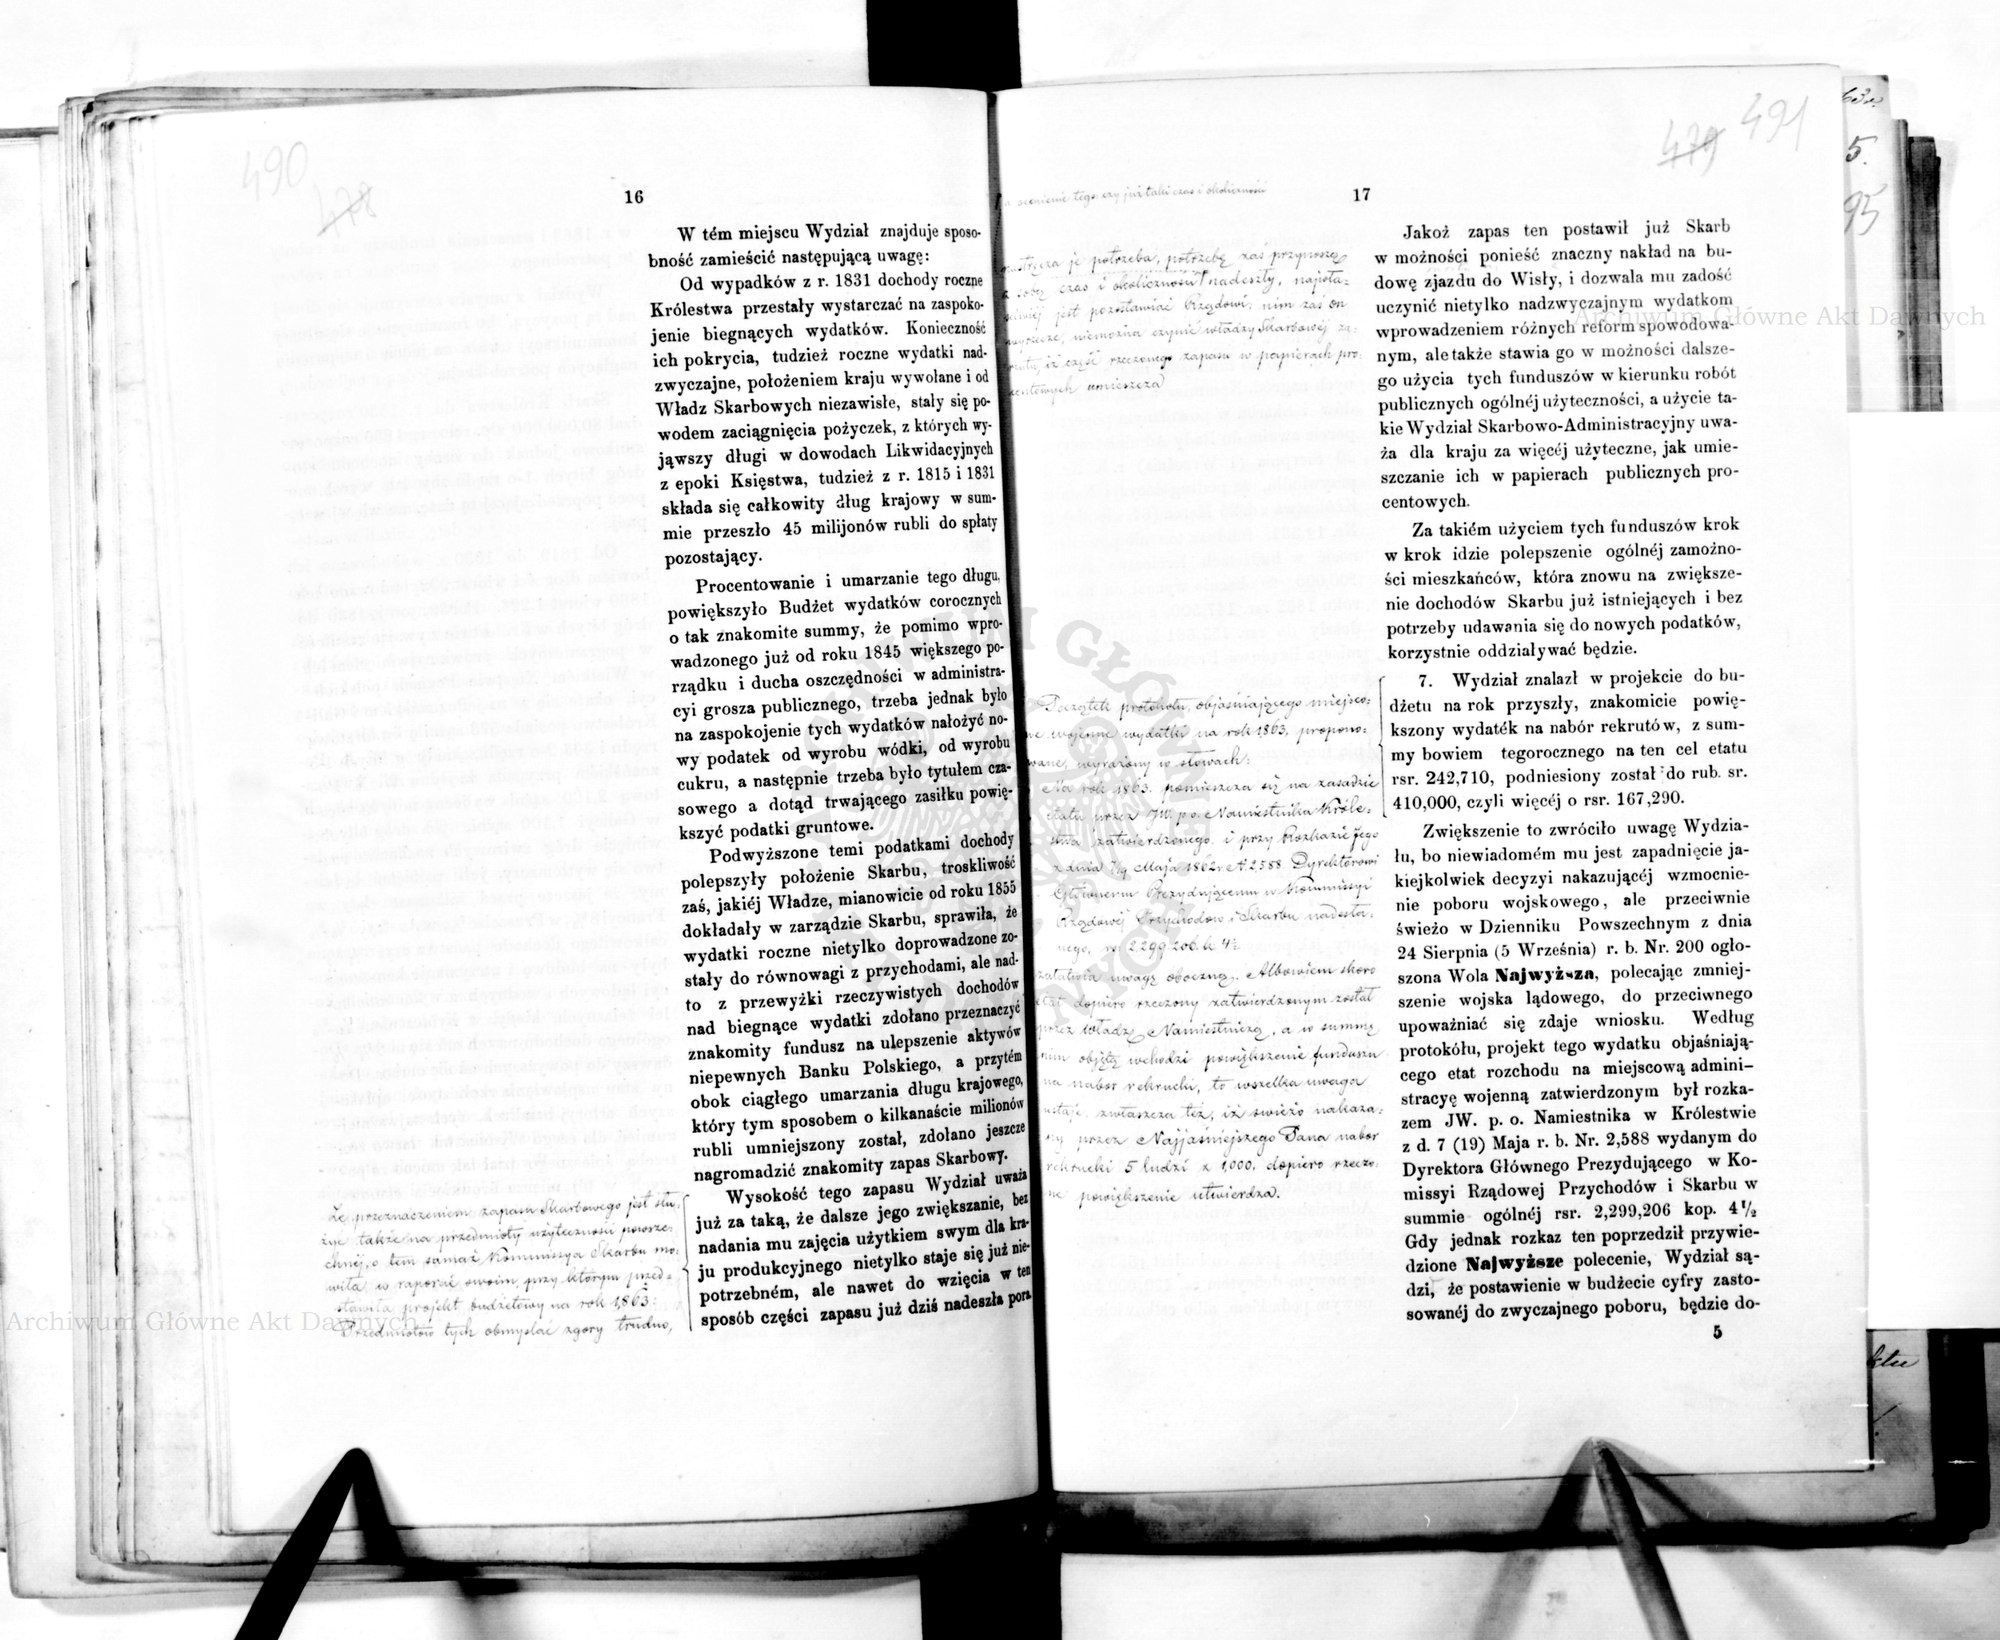 490
478
16
W tém miejscu Wydział znajduje sposo-
bność zamieścić następującą uwagę:
Od wypadków z r. 1831 dochody roczne
Królestwa przestały wystarczać na zaspoko-
jenie biegnących wydatków. Konieczność
ich pokrycia, tudzież roczne wydatki nad-
zwyczajne, położeniem kraju wywołane i od
Władz Skarbowych niezawisłe, stały się po-
wodem zaciągnięcia pożyczek, z których wy-
jąwszy długi w dowodach Likwidacyjnych
z epoki Księstwa, tudzież z r. 1815 i 1831
składa się całkowity dług krajowy w sum-
mie przeszło 45 milijonów rubli do spłaty
pozostający.
Procentowanie i umarzanie tego długu,
powiększyło Budżet wydatków corocznych
o tak znakomite summy, że pomimo wpro-
wadzonego już od roku 1845 większego po-
rządku i ducha oszczędności w administra-
cyi grosza publicznego, trzeba jednak było
na zaspokojenie tych wydatków nałożyć no-
wy podatek od wyrobu wódki, od wyrobu
cukru, a następnie trzeba było tytułem cza-
sowego a dotąd trwającego zasiłku powię-
kszyć podatki gruntowe.
Podwyższone temi podatkami dochody
polepszyły położenie Skarbu, troskliwość
zaś, jakiéj Władze, mianowicie od roku 1855
dokładały w zarządzie Skarbu, sprawiła, że
wydatki roczne nietylko doprowadzone zo-
stały do równowagi z przychodami, ale nad-
to z przewyżki rzeczywistych dochodów
nad biegnące wydatki zdołano przeznaczyć
znakomity fundusz na ulepszenie aktywów
niepewnych Banku Polskiego, a przytém
obok ciągłego umarzania długu krajowego,
który tym sposobem o kilkanaście milionów
rubli umniejszony został, zdołano jeszcze
nagromadzić znakomity zapas Skarbowy.
Wysokość tego zapasu Wydział uważa
już za taką, że dalsze jego zwiększanie, bez
nadania mu zajęcia użytkiem swym dla kra-
ju produkcyjnego nietylko staje się już nie-
potrzebném, ale nawet do wzięcia w ten
sposób części zapasu już dziś nadeszła pora.
Że przeznaczeniem zapasu Skarbowego jest słu-
żyć także na przedmioty użyteczności powsze-
chnéj, o tem sama Kommissya Skarbu mó-
wiła w raporcie swoim przy którym przed-
stawiła projekt budżetowy na rok 1863.
Przedmiotów tych obmyślać zgóry trudno,
479
491
17
ocenienie tego czy już taki czas i okoliczności
nastręcza je potrzeba, potrzebę zaś przynoszą
z sobą czas i okoliczności nadeszły,
jest pozostawiać Rządowi; nim zaś on
niemożna czynić władzy Skarbowéj za-
rzutu, iż część rzeczonego zapasu w papierach pro-
centowych umieszcza
Początek protokołu, objaśniającego miejsco-
we wojenne wydatki na rok 1863, propono-
wane, wyrażony w słowach:
Na rok 1863. pomieszcza się na zasadzie
etatu przez JW. p.o. Namiestnika Króle-
stwa zatwierdzonego i przy Rozkazie Jego
z dnia 7/19 Maja 1862 r. № 2588. Dyrektorowi
Głównemu Prezydującemu w Kommissyi
Rządowéj Przychodów i Skarbu nadesła-
nego, rs. 2.299.206. k. 4½
załatwia uwagę oboczną. Albowiem skoro
etat dopiero rzeczony zatwierdzonym został
przez Władzę Namiestniczą, a w summę
nim objętą wchodzi powiększenie funduszu
na nabór rekrucki, to wszelka uwaga
ustaje, zwłaszcza też, iż świeżo nakaza-
ny przez Najjaśniejszego Pana nabór
rekrucki 5 ludzi z 1,000, dopiero rzeczo-
ne powiększenie utwierdza.
Jakoż zapas ten postawił już Skarb
w możności ponieść znaczny nakład na bu-
dowę zjazdu do Wisły, i dozwala mu zadość
uczynić nietylko nadzwyczajnym wydatkom
wprowadzeniem różnych reform spowodowa-
nym, ale także stawia go w możności dalsze-
go użycia tych funduszów w kierunku robót
publicznych ogólnéj użyteczności, a użycie ta-
kie Wydział Skarbowo-Administracyjny uwa-
ża dla kraju za więcéj użyteczne, jak umie-
szczanie ich w papierach publicznych pro-
centowych.
Za takiém użyciem tych funduszów krok
w krok idzie polepszenie ogólnéj zamożno-
ści mieszkańców, która znowu na zwiększe-
nie dochodów Skarbu już istniejących i bez
potrzeby udawania się do nowych podatków,
korzystnie oddziaływać będzie.
7. Wydział znalazł w projekcie do bu-
dżetu na rok przyszły, znakomicie powię-
kszony wydaték na nabór rekrutów, z sum-
my bowiem tegorocznego na ten cel etatu
rsr. 242,710, podniesiony został do rub. sr.
410,000, czyli więcéj o rsr. 167,290.
Zwiększenie to zwróciło uwagę Wydzia-
łu, bo niewiadomém mu jest zapadnięcie ja-
kiejkolwiek decyzyi nakazującéj wzmocnie-
nie poboru wojskowego, ale przeciwnie
świeżo w Dzienniku Powszechnym z dnia
24 Sierpnia (5 Września) r. b. Nr. 200 ogło-
szona Wola Najwyższa, polecając zmniej-
szenie wojska lądowego, do przeciwnego
upoważniać się zdaje wniosku. Według
protokółu, projekt tego wydatku objaśniają-
cego etat rozchodu na miejscową admini-
stracyę wojenną zatwierdzonym był rozka-
zem JW. p. o. Namiestnika w Królestwie
z d. 7 (19) Maja r. b. Nr. 2,588 wydanym do
Dyrektora Głównego Prezydującego w Ko-
missyi Rządowej Przychodów i Skarbu w
summie ogólnéj rsr. 2,299,206 kop. 4½
Gdy jednak rozkaz ten poprzedził przywie-
dzione Najwyższe polecenie, Wydział są-
dzi, że postawienie w budżecie cyfry zasto-
sowanéj do zwyczajnego poboru, będzie do-
5
63r.
5.
95
Archiwum Główne Akt Dawnych
Archiwum Główne Akt Dawnych
ARCHIWUM GŁÓWNE AKT DAWNYCH